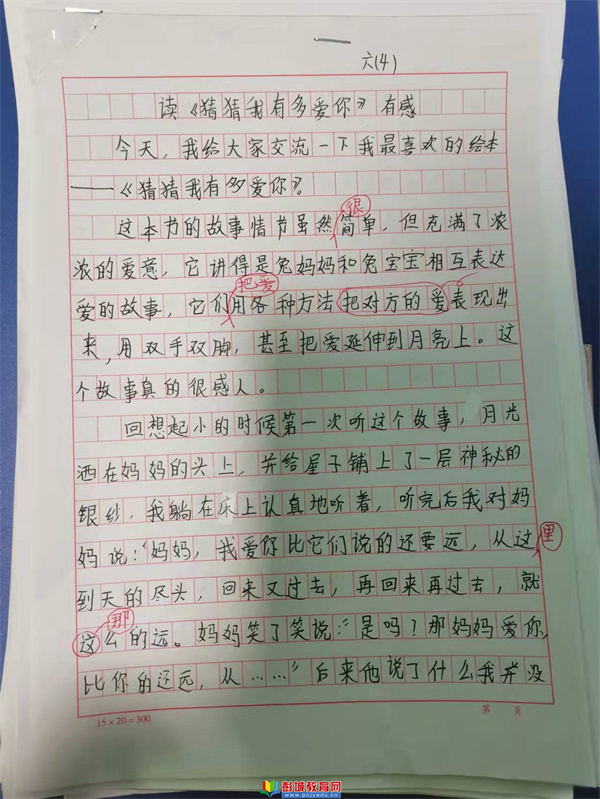 六(4)
读《猜猜我有多爱你》有感
今天，我给大家交流一下我最喜欢的绘本
——《猜猜我有多爱你》。
很
这本书的故事情节虽然简单，但充满了浓
浓的爱意，它讲得是兔妈妈和兔宝宝相互表达
把爱
爱的故事，它们用各种方法把对方的爱表现出
来，用双手双脚，甚至把爱延伸到月亮上。这
个故事真的很感人。
回想起小的时候第一次听这个故事，月光
洒在妈妈的头上，并给屋子铺上了一层神秘的
银纱，我躺在床上认真地听着，听完后我对妈
妈说：“妈妈，我爱你比它们说的还要远，从这
里
到天的尽头，回来又过去，再回来再过去，就
那
这么的远。妈妈笑了笑说：“是吗？那妈妈爱你，
比你的还远，从……”后来他说了什么我并没
15×20=300
第 页
彭城教育网
www.pcjyedu.cn